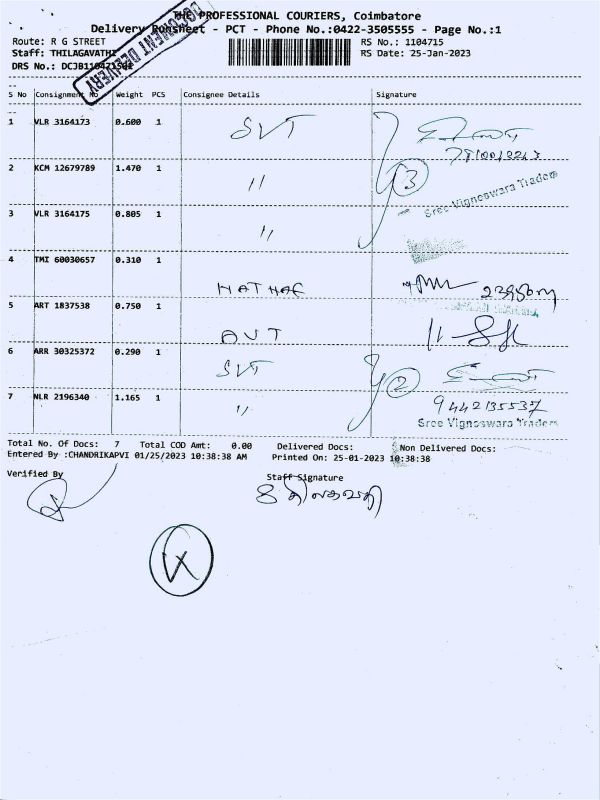 THE PROFESSIONAL COURIERS, Coimbatore
Delivery Runsheet - PCT - Phone No.:0422-3505555 - Page No.:1
Route: R G STREET RS No.: 1104715
Staff: THILAGAVATHI RS Date: 25-Jan-2023
DRS No.: DCJB110471501
DOCUMENT DELIVERY
S No Consignment No Weight PCS Consignee Details Signature
1 VLR 3164173 0.600 1 SVT
2 KCM 12679789 1.470 1 11 3
Sree Vigneswara Traders
3 VLR 3164175 0.805 1 11
4 TMI 60030657 0.310 1
5 ART 1837538 0.750 1 AVT
6 ARR 30325372 0.290 1 SVT 2
7 NLR 2196340 1.165 1 11 9442135537
Sree Vigneswara Traders
Total No. Of Docs: 7 Total COD Amt: 0.00 Delivered Docs: Non Delivered Docs:
Entered By :CHANDRIKAPVI 01/25/2023 10:38:38 AM Printed On: 25-01-2023 10:38:38
Verified By Staff Signature